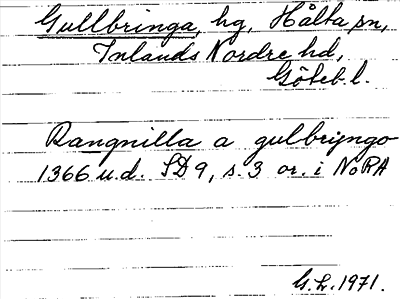 Gullbringa, hg, Hålta sn,
Inlands Nordre hd,
Göteb. l.
Rangnilla a gulbryngo
1366 u.d. SD 9, s. 3 or. i NoRA
G.L. 1971.